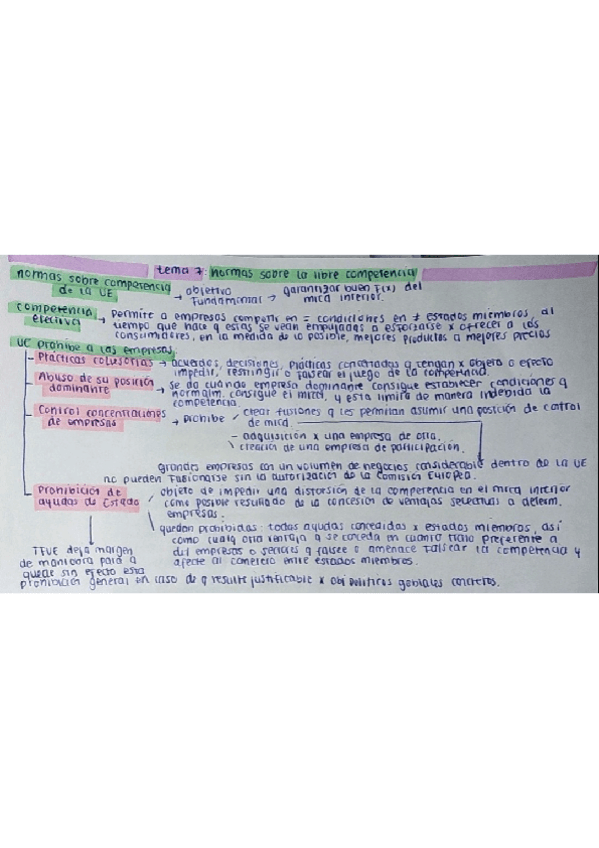 tema 7: normas sobre la libre competencia
normas sobre competencia de la UE → objetivo fundamental → garantizar buen F(x) del mrca interior.
competencia efectiva → permite a empresas competir en = condiciones en ≠ estados miembros, al
tiempo que hace q estas se vean empujadas a esforzarse x ofrecer a los
consumidores, en la medida de lo posible, mejores productos a mejores precios
UE prohíbe a las empresas:
Prácticas colusorias → acuerdos, decisiones, prácticas concertadas q tengan x objeto o efecto
impedir, restringir o falsear el juego de la competencia.
Abuso de su posición dominante → se da cuando empresa dominante consigue establecer condiciones q
normalm. consigue el mrca, y esta limita de manera indebida la
competencia
Control concentraciones de empresas → prohíbe
crear fusiones q les permitan asumir una posición de control
de mrca.
- adquisición x una empresa de otra.
creación de una empresa de participación.
grandes empresas con un volumen de negocios considerable dentro de la UE
no pueden fusionarse sin la autorización de la Comisión Europea.
Prohibición de ayudas de Estado
objeto de impedir una distorsión de la competencia en el mrca interior
como posible resultado de la concesión de ventajas selectivas a determ.
empresas.
quedan prohibidas: todas ayudas concedidas x estados miembros, así
como cualq otra ventaja q se conceda en cuanto trato preferente a
empresas o sectores q falsee o amenace falsear la competencia y
afecte al comercio entre estados miembros.
TFUE deja margen
de maniobra para q
quede sin efecto esta
prohibición general en caso de q resulte justificable x obj políticos globales concretos.